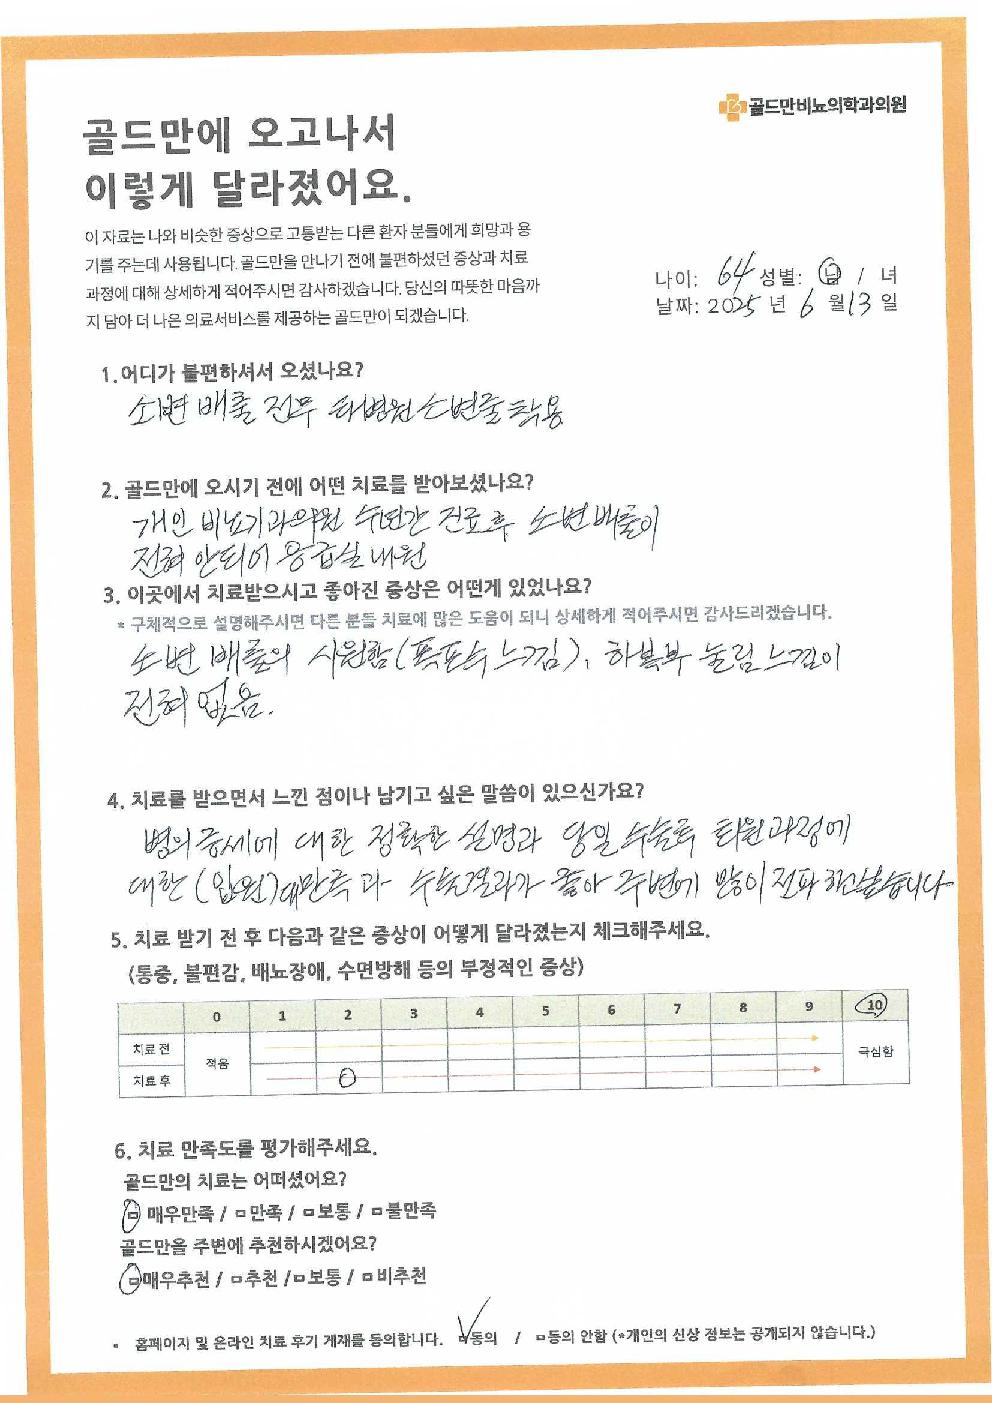 골드만비뇨의학과의원
골드만에 오고나서
이렇게 달라졌어요.
이 자료는 나와 비슷한 증상으로 고통받는 다른 환자 분들에게 희망과 용
기를 주는데 사용됩니다. 골드만을 만나기 전에 불편하셨던 증상과 치료
과정에 대해 상세하게 적어주시면 감사하겠습니다. 당신의 따뜻한 마음까
지 담아 더 나은 의료서비스를 제공하는 골드만이 되겠습니다.
나이: 64 성별: 남 / 녀
날짜: 2025 년 6 월 13 일
1. 어디가 불편하셔서 오셨나요?
소변 배출 전무 타병원 소변줄 착용
2. 골드만에 오시기 전에 어떤 치료를 받아보셨나요?
개인 비뇨기과의원 수년간 진료후 소변배출이
전혀 안되어 응급실 내원
3. 이곳에서 치료받으시고 좋아진 증상은 어떤게 있었나요?
* 구체적으로 설명해주시면 다른 분들 치료에 많은 도움이 되니 상세하게 적어주시면 감사드리겠습니다.
소변 배출의 시원함(폭포수 느낌), 하복부 눌림 느낌이
전혀 없음.
4. 치료를 받으면서 느낀 점이나 남기고 싶은 말씀이 있으신가요?
병의 증세에 대한 정확한 설명과 당일 수술로 퇴원과정에
대한 (입원)대만족 과 수술결과가 좋아 주변에 많이 전파 하고있습니다
5. 치료 받기 전 후 다음과 같은 증상이 어떻게 달라졌는지 체크해주세요.
(통증, 불편감, 배뇨장애, 수면방해 등의 부정적인 증상)
0 1 2 3 4 5 6 7 8 9 10
치료 전
적음
극심함
치료 후
6. 치료 만족도를 평가해주세요.
골드만의 치료는 어떠셨어요?
□ 매우만족 / □ 만족 / □ 보통 / □ 불만족
골드만을 주변에 추천하시겠어요?
□ 매우추천 / □ 추천 / □ 보통 / □ 비추천
* 홈페이지 및 온라인 치료 후기 게재를 동의합니다. □ 동의 / □ 동의 안함 (*개인의 신상 정보는 공개되지 않습니다.)